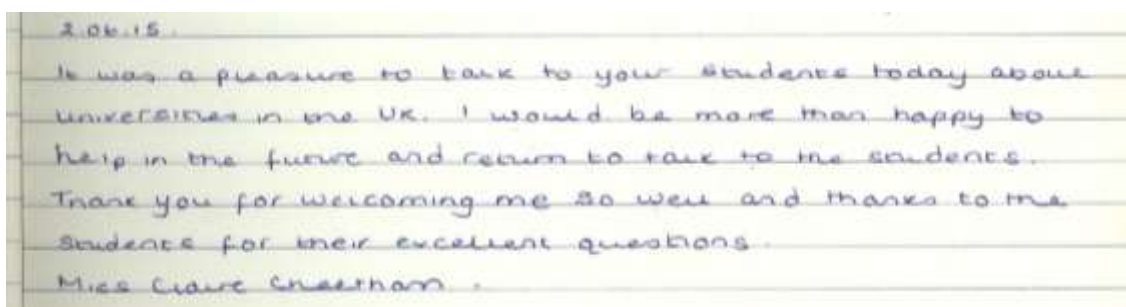 2.06.15.
It was a pleasure to talk to your students today about
universities in the UK. I would be more than happy to
help in the future and return to talk to the students.
Thank you for welcoming me so well and thanks to the
students for their excellent questions.
Miss Claire Cheetham.